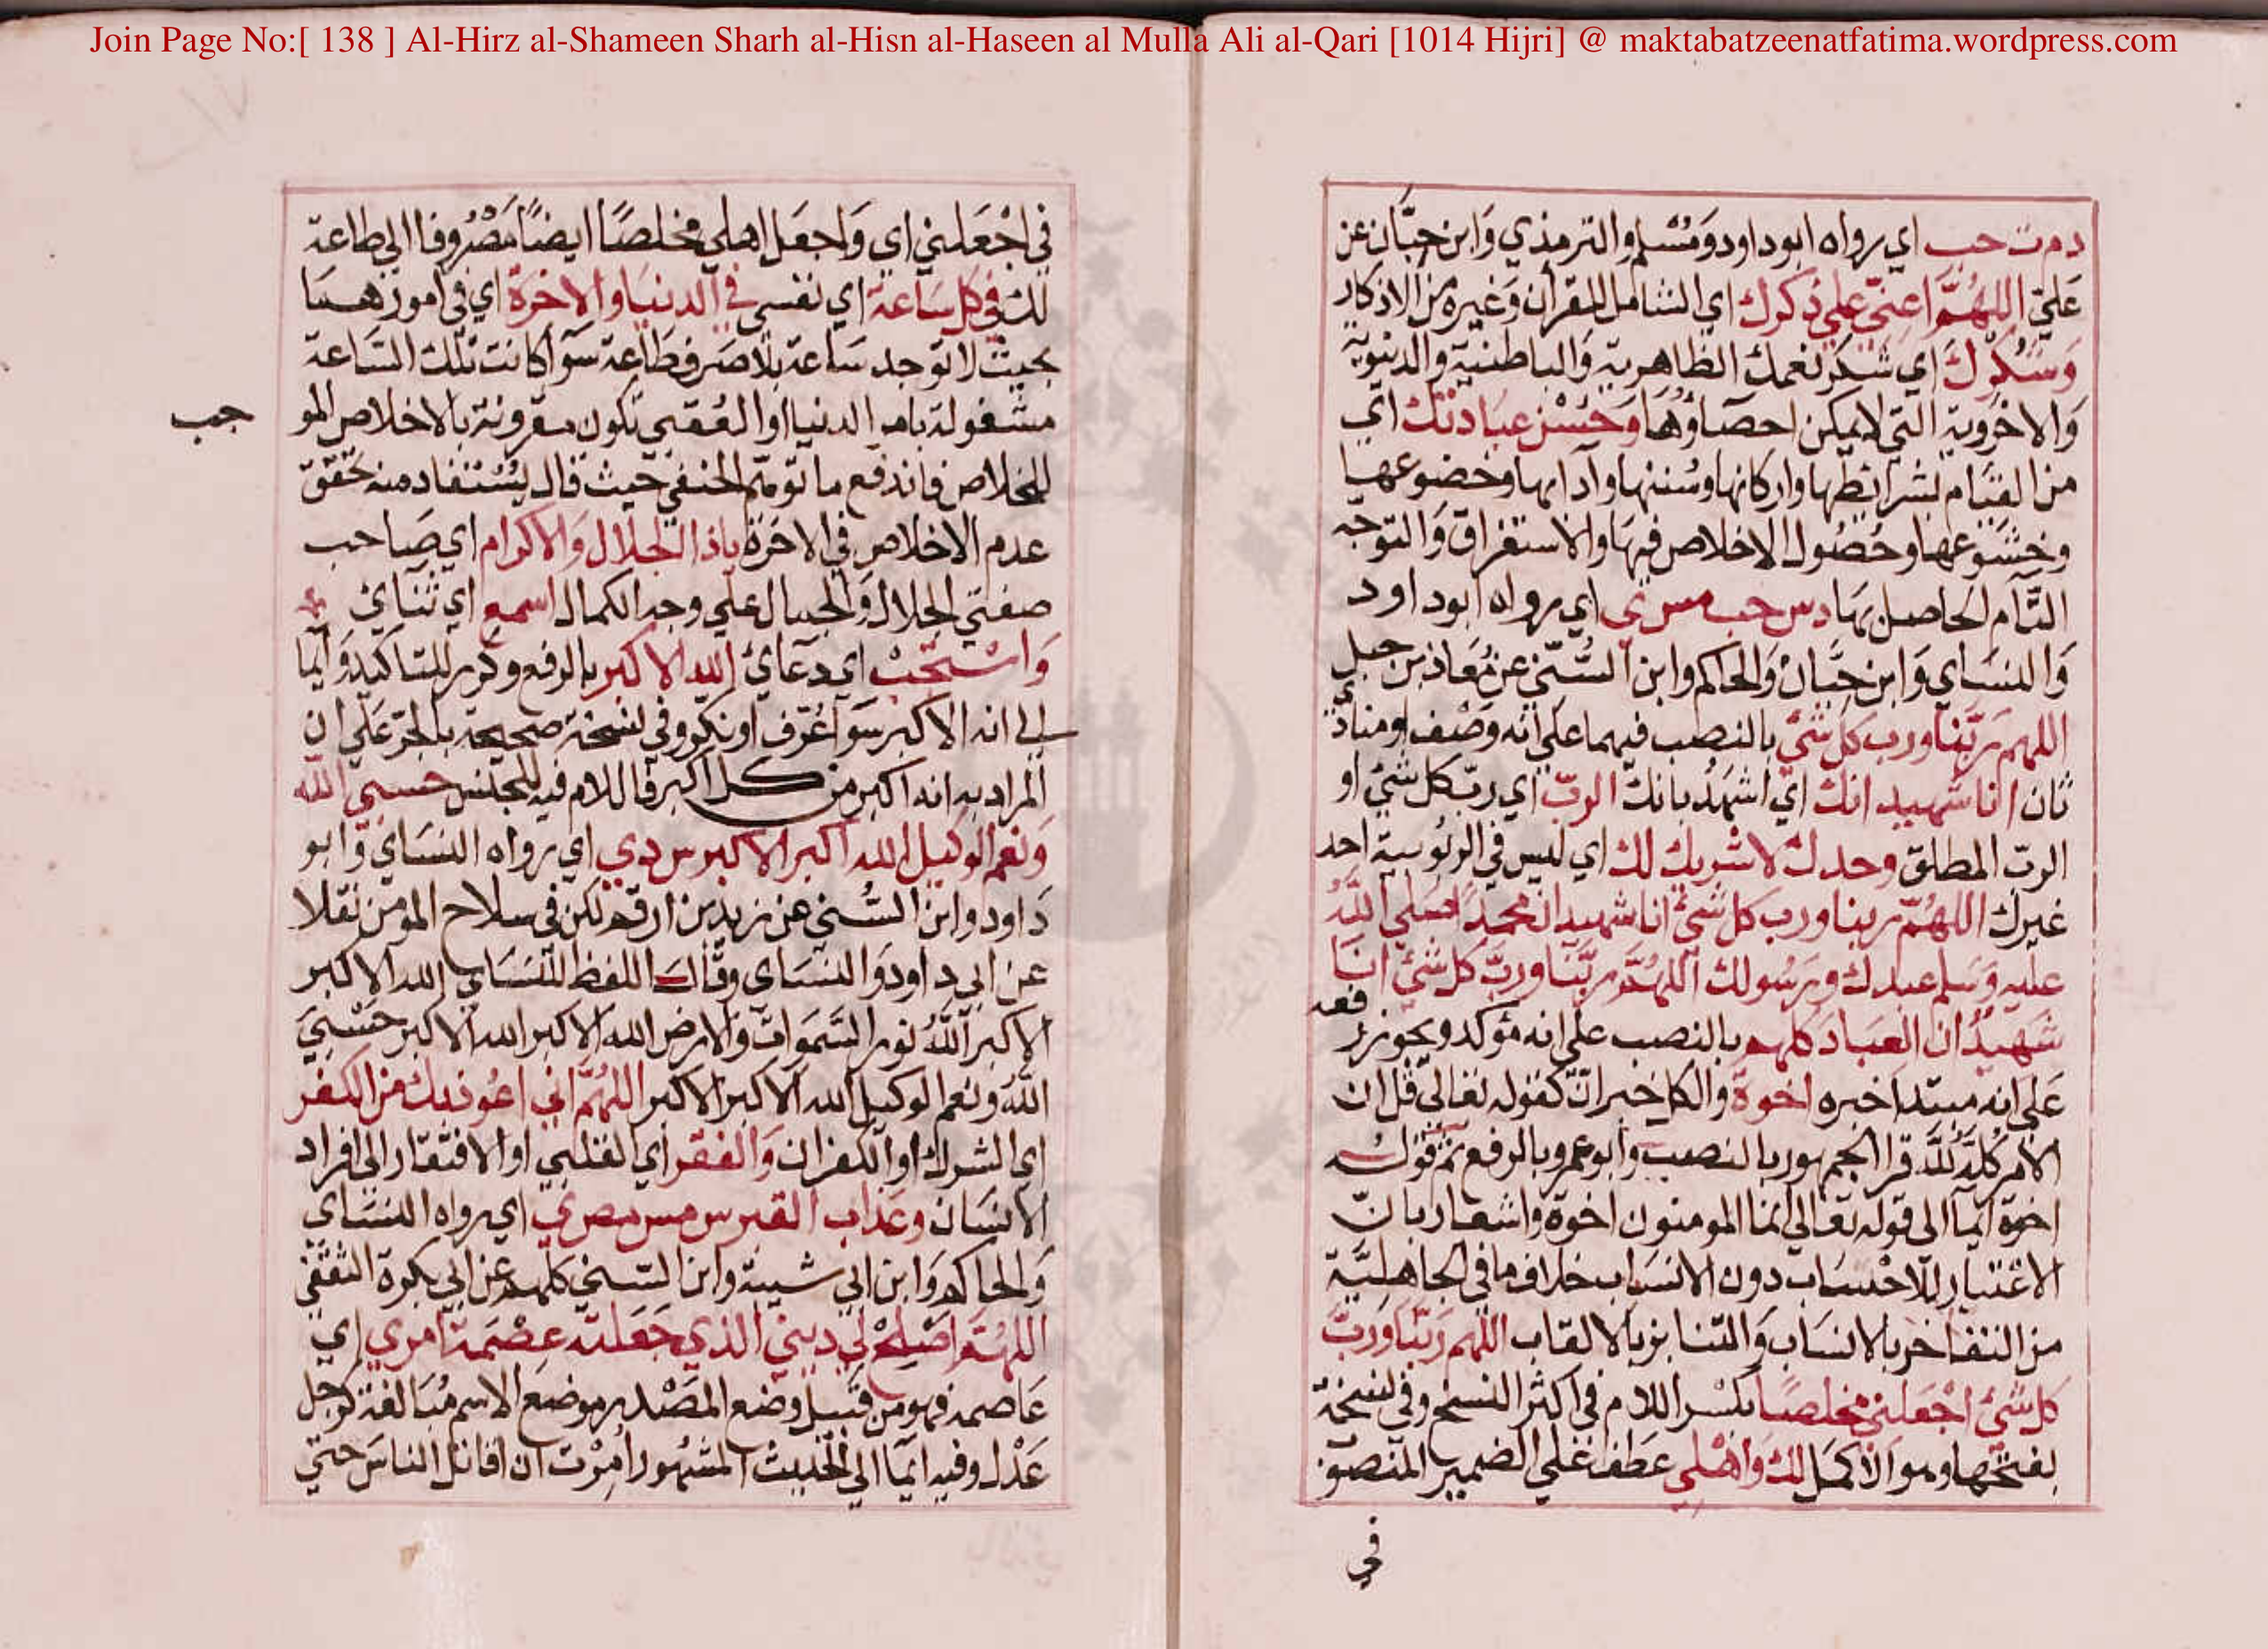 Join Page No:[ 138 ] Al-Hirz al-Shameen Sharh al-Hisn al-Haseen al Mulla Ali al-Qari [1014 Hijri] @ maktabatzeenatfatima.wordpress.com
دمت حب اي رواه ابوداود وَمُسْلم والترمذي وَابن حِبَّان عن
عَليّ اللهُمَّ اعِنّي علي ذكرك اي الشامل للقرآن وَغيره من الاذكار
وَشُكْرِكَ اي شكر نعمك الظاهرية وَالباطنية والدنيوية
وَالاخروية التي لا يمكن احصاؤهَا وَحُسْن عبَادتك اي
من القيَام بشرائطها واركانها وسُننها وآدابها وخضوعها
وخشوعها وحُصُول الاخلاص فيهَا والاستغراق وَالتوجّه
التّام الحاصل بهَا دس حب مس ي اي رواه ابود اود
وَالنسَاي وَابن حِبَّان وَالحاكم وابن السُّنّي عن مُعَاذ بن جبل
اللهم رَبّنا ورب كل شئ بالنصب فيهما على انه وَصْف او منادي
ثان انا شهيد انك اي اشهَدُ بانك الربّ اي ربّ كل شئ او
الربّ المطلق وحدك لا شريك لك اي ليس في الربُوبية احد
غيرك اللهُمّ ربنا ورب كل شئ انا شهيد ان محمدًا صَلي اللهُ
عليه وَسَلم عبدك ورَسُولك اللهُمَّ ربَّنا وربّ كل شئ انا
شَهيدٌ ان العبَادَ كلهم بالنصب علي انه مؤكد ويجوز رفعه
عَلي انه مبتدا خبره اخوة والكل خبر انّ كقوله تعالي قل ان
الامر كلّه لله قرا الجمهور بالنصب وابوعمرو بالرفع ثم قوله
اخوة ايمآ الي قوله تعالي انما المومنون اخوة واشعار بانّ
الاعتبار للاحْسَاب دون الانسَاب خلاف ما في الجاهليَّة
من التفاخر بالانسَاب وَالتنابز بالالقاب اللهم رَبّنا وَربّ
كل شئ اجْعَلني مخلصًا بكسْر اللام في اكثر النسخ وفي نسخة
بفتحها وهو الاكمل لك وَاهْلي عَطف علي الضمير المنصوب
في
في اجْعَلني اي وَاجعَل اهلي مخلصًا ايضًا مَصْرُوفا الي طاعة
لك في كل سَاعة اي نفسي في الدنيَا والاخرة اي في امورهما
بحيث لا توجد سَاعة بلا صَرف طَاعة سَوآ كانت تلك السَّاعة
مشغولة بامر الدنيا او العُقبي تكون مقرونة بالاخلاص المو
جب
للخلاص فاندفع ما توهّم الحنفي حيث قال يُسْتفاد منه تحقّق
عدم الاخلاص في الاخرة ياذا الجلال وَالاكرام اي صَاحب
صفتي الجلال وَالجمال علي وجه الكمال اسمع اي ثنائ
وَاسْتجبْ اي دعآئ الله الاكبر بالرفع وكرر للتاكيد وَايما
الي انه الاكبر سَوآ عُرّف او نكّر وفي نسخة صحيحة بالجرّ عَلي ان
المراد به انه اكبر من كل اكبر فاللام فيه للجنس حسبي الله
وَنعم الوكيل الله اكبر الاكبر س د ي اي رواه النسَاي وَابو
دَاود وابن السُّني عن زيد بن ارقم لكن في سلاح المؤمن نقلا
عن ابي داود وَالنسَاي وقال اللفظ للنسَاي الله الاكبر
الاكبر اللهُ نور السَّموَات وَالارض الله الاكبر الله الاكبر حَسْبيَ
اللهُ ونعم الوكيل الله الاكبر الاكبر اللهُمَّ اني اعُوذ بك من الكفر
اي الشرك او الكفران وَالفقر اي القلبي او الافتقار الي افراد
الانسَان وعَذاب القبر س مس مص ي اي رواه النسَاي
وَالحاكم وَابن ابي شيبة وابن السّني كلهم عن ابي بكرة الثقفي
اللهُمّ اصْلِحْ لي ديني الذي جَعَلته عِصْمَة امري اي
عَاصمه فهو من قبيل وضع المصْدر موضع الاسم مُبَالغة كرجل
عَدْل وفيه ايمآ الي الحديث المشهور امِرْت ان اقاتل الناسَ حتي